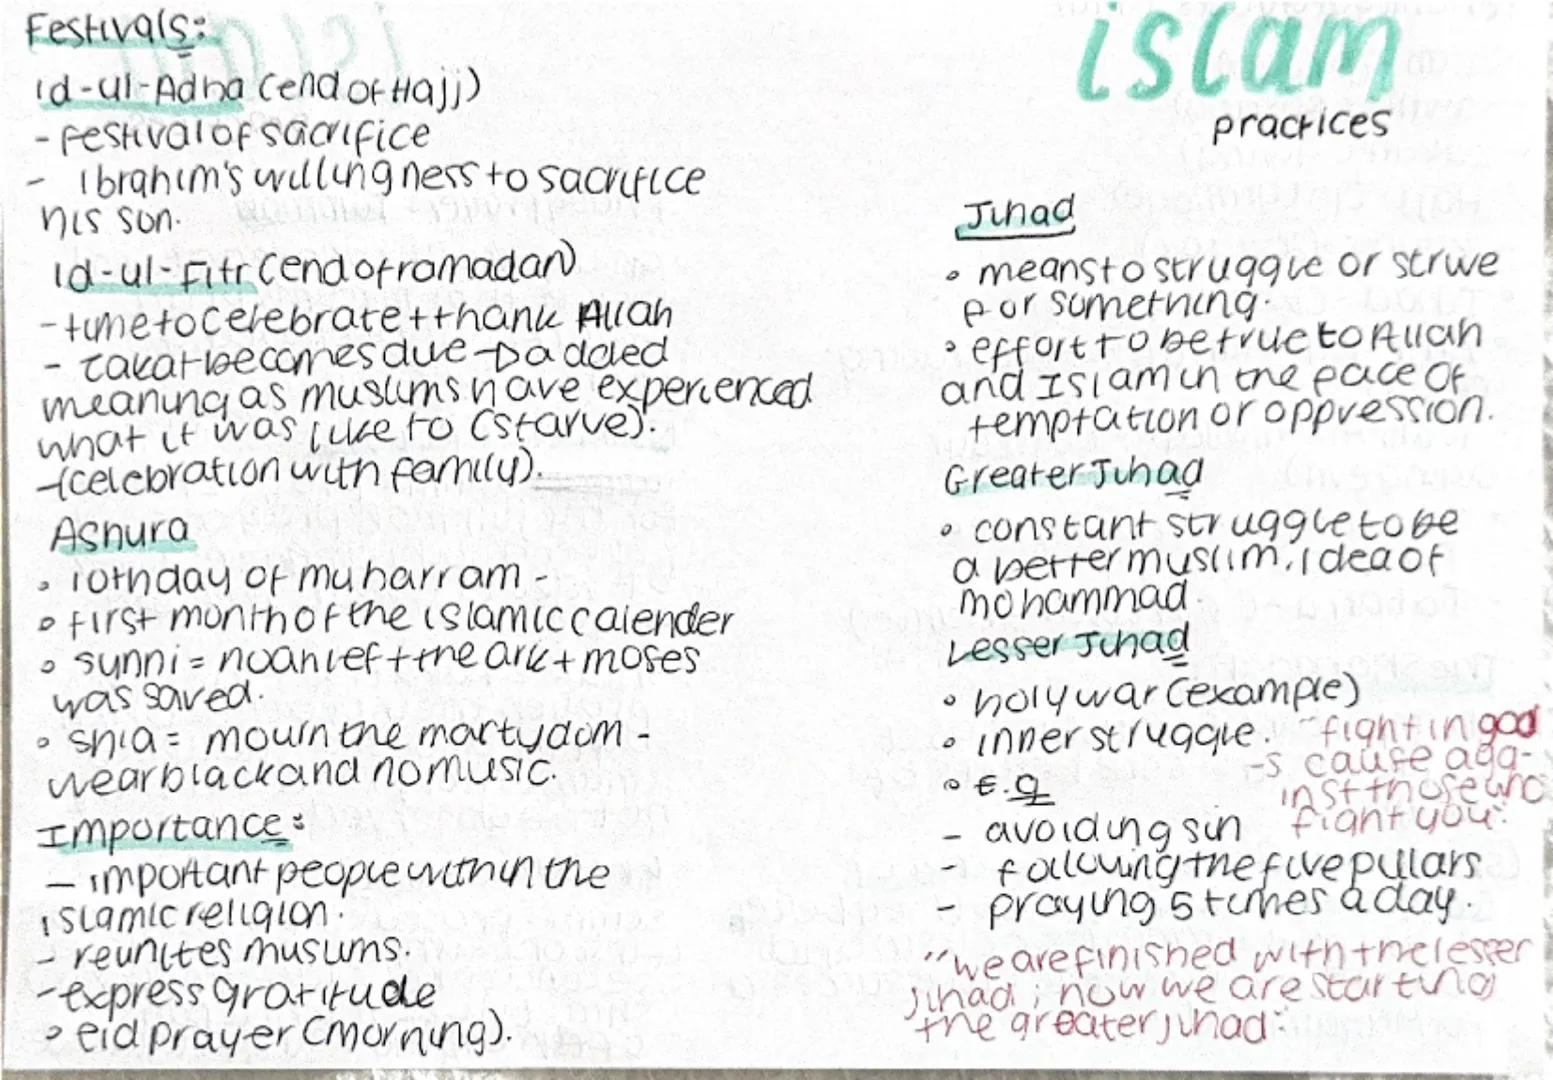 Festivals:
id-ul-Adha (end of Hajj)
- Festival of sacrifice
- Ibrahim's willingness to sacrifice
his son.
id-ul-Fitr (end of ramadan)
- time to celebrate + thank Allah
- zakat becomes due → added
meaning as muslims have experienced
what it was like to (starve).
- (celebration with family).
Ashura
• 10th day of muharram -
• first month of the islamic calender
• sunni = noah left the ark + moses
was saved.
• shia = mourn the martydom -
wear black and no music.
Importance:
- important people within the
islamic religion.
- reunites muslims.
- express gratitude
• eid prayer (morning).
islam
practices
Jihad
• means to struggle or strive
for something.
• effort to be true to Allah
and Islam in the face of
temptation or oppression.
Greater Jihad
• constant struggle to be
a better muslim. Idea of
mohammad.
Lesser Jihad
• holy war (example)
• inner struggle.
• E.g
- avoiding sin
- following the five pillars
- praying 5 times a day.
"fight in god
-s cause aga-
inst those who
fight you".
"we are finished with the lesser
jihad, now we are starting
the greater jihad".